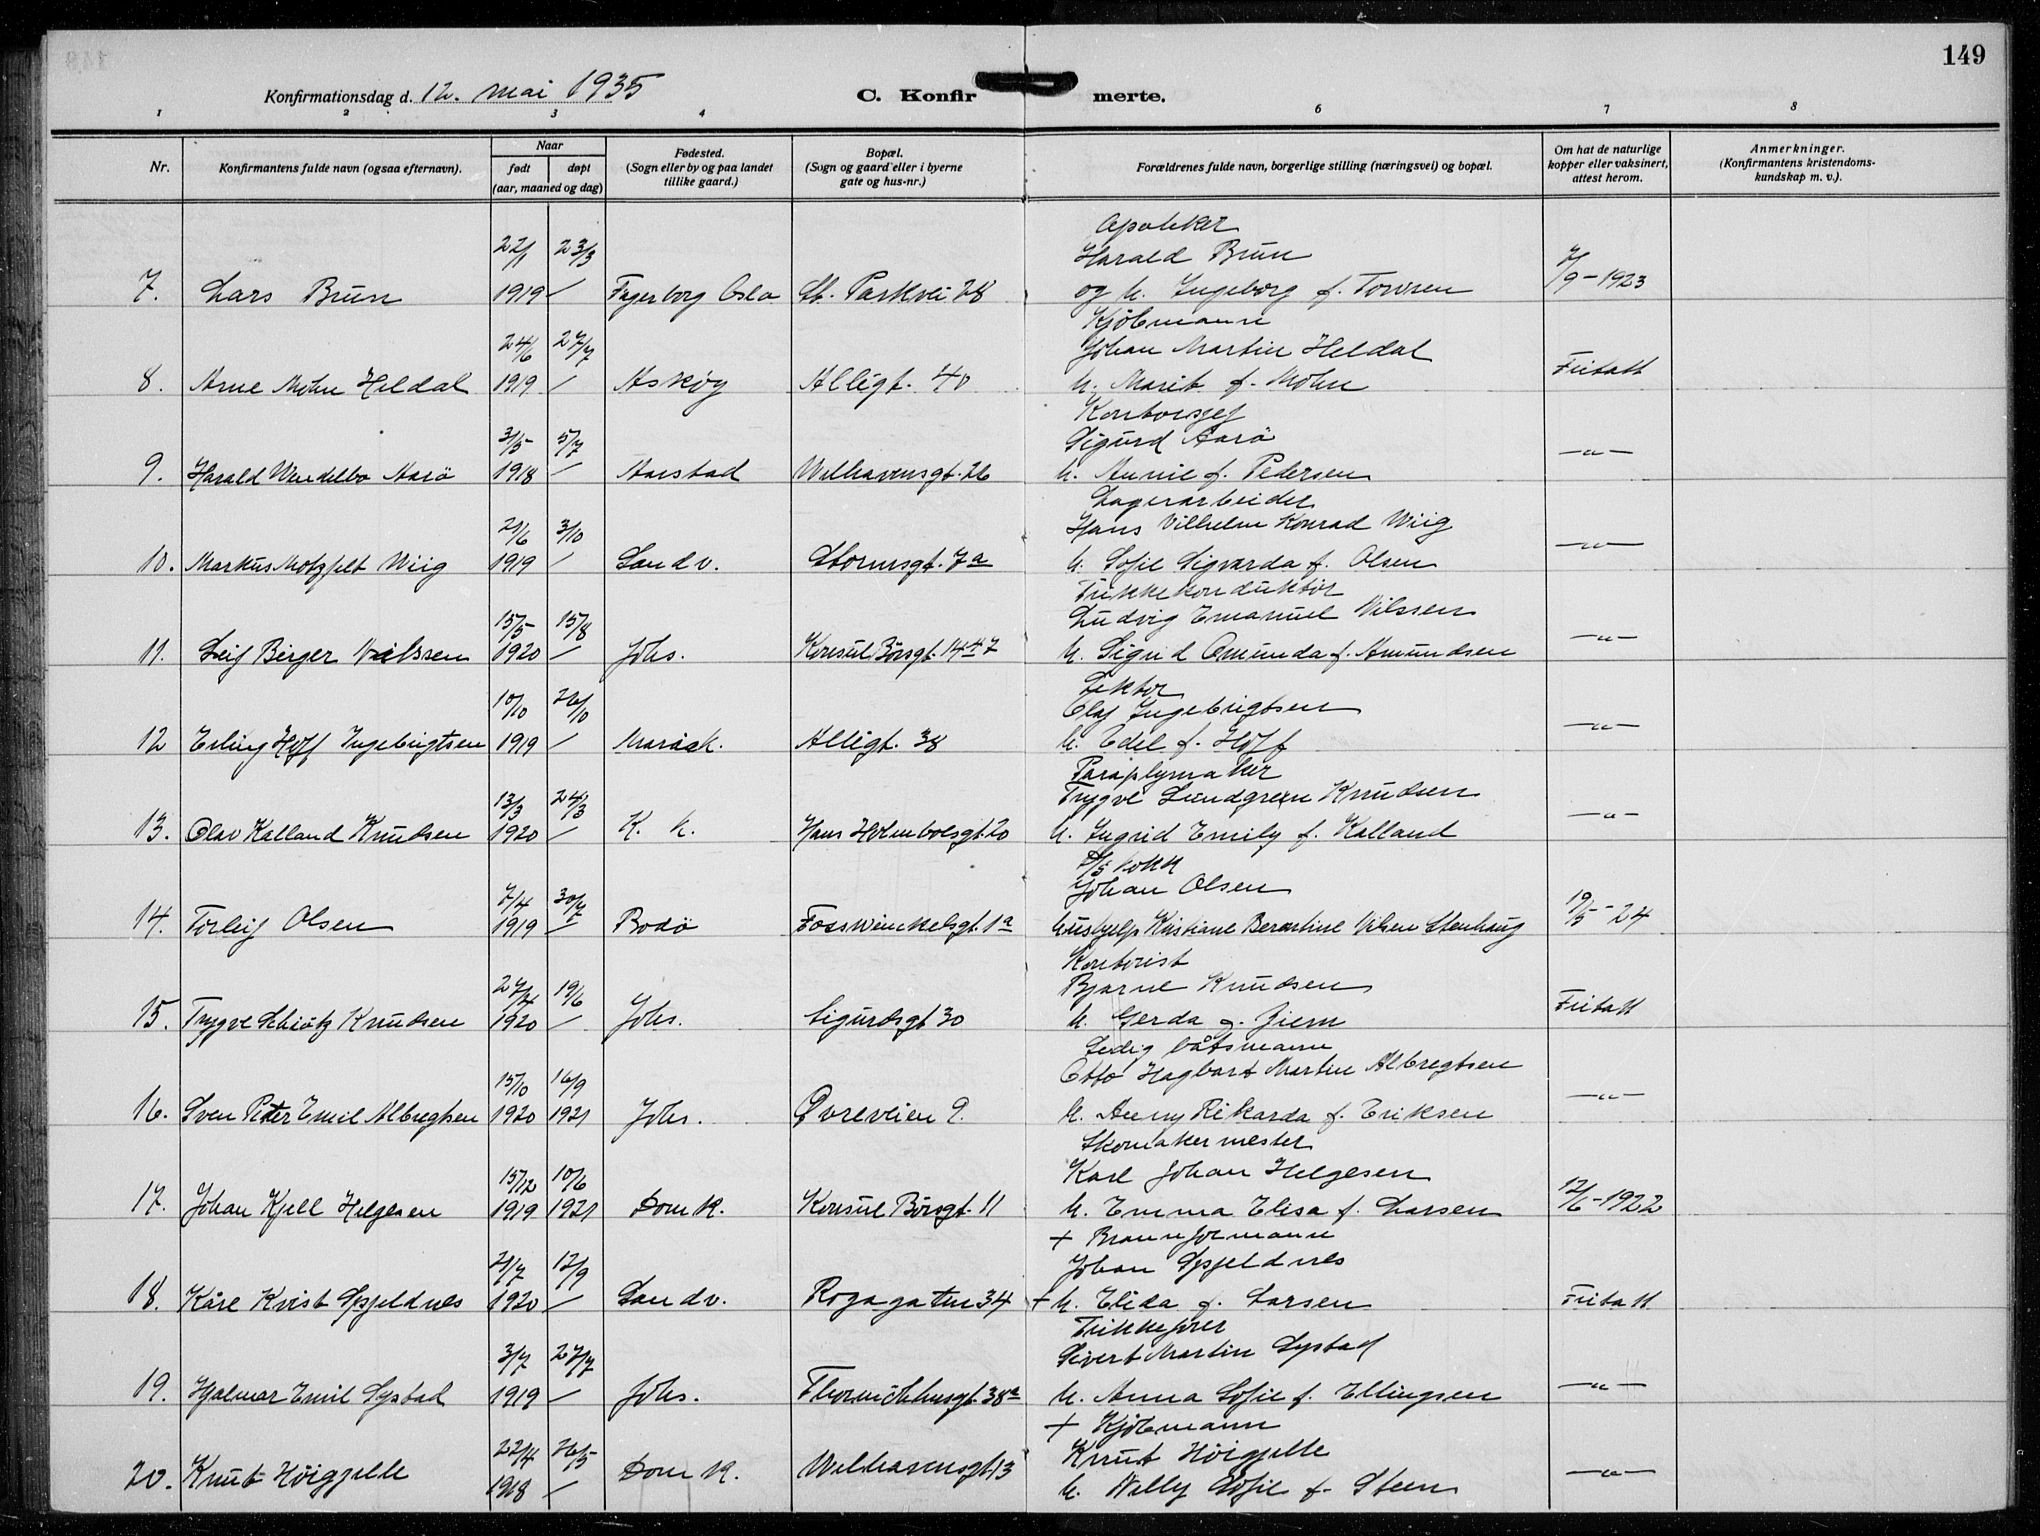 149
Konfirmationsdag d. 12. mai 1935
C. Konfirmerte.
1 2 3 4 6 7 8
Nr.
Konfirmantens fulde navn (ogsaa efternavn).
Naar
født døpt
(aar, maaned og dag)
Fødested.
(Sogn eller by og paa landet
tillike gaard.)
Bopæl.
(Sogn og gaard eller i byerne
gate og hus-nr.)
Forældrenes fulde navn, borgerlige stilling (næringsvei) og bopæl.
Om hat de naturlige
kopper eller vaksinert,
attest herom.
Anmerkninger.
(Konfirmantens kristendoms-
kundskap m. v.).
Apoteker
22/1 23/3 Harald Brun
7. Lars Brun 1919 / Fagerborg Oslo St. Parkvei 28 og h. Ingeborg f. 7/9-1923
Kjöbmann
24/6 27/7 Johan Martin Heldal
8. Arne Mohn Heldal 1919 / Askøy Allégt. 40 h. Marit f. Mohn Fritatt
Kontorsjef
3/5 5/7 Sigurd Aarö
9. Harald Wendelbo Aarö 1918 / Aarstad Welhavensgt. 26 h. Annie f. Pedersen —"—
Lagerarbeider
2/6 3/10 Hans Vilhelm Konrad Wiig
10. Markus Motzfelt Wiig 1919 / Sandv. Stormsgt. 7a h. Sofie Sigvarda f. Olsen —"—
Trikkekonduktör
15/5 15/8 Ludvig Emanuel Nilssen
11. Leif Birger Nilssen 1920 / Johs. Konsul Börsgt. 14 h. Sigrid Omunda f. Amundsen —"—
Lektor
10/10 26/10 Olaf Ingebrigtsen
12 Erling Hoff Ingebrigtsen 1919 / Allégt. 38 h. Edel f. Hoff —"—
Paraplymaker
13/3 24/3 Trygve Lundgreen Knudsen
13. Olav Kalland Knudsen 1920 / K. k. Hans Holmboesgt. 20 h. Ingrid Emily f. Kalland —"—
D/S kokk
7/4 30/7 Johan Olsen
14. Torleif Olsen 1919 / Bodö Fosswinckelsgt. 1a hushjelp Kristiane Berentine Nilsen Stenhaug 19/5-24
Kontorist
27/4 19/6 Bjarne Knudsen
15. Trygve Schiøtz Knudsen 1920 / Johs. Sigurdsgt 30 h. Gerda f. Ziem Fritatt
Ledig båtsmann
15/10 16/9 Otto Hagbart Martin Albregtsen
16. Sven Peter Emil Albregtsen 1920 1921 Johs. Øvreveien 9. h. Anny Rikarda f. Eriksen —"—
Skomakermester
15/12 10/6 Karl Johan Helgesen
17. Johan Kjell Helgesen 1919 1921 Domk. Konsul Börsgt. 11 h. Emma Elisa f. Larsen 12/6-1922
+ Brannformann
21/7 12/9 Johan Spjeldnes
18. Kåre Kvist Spjeldnes 1920 / Sandv. Rogagaten 34 + h. Elida f. Larsen Fritatt
Trikkefører
3/7 27/7 Sivert Martin Systad
19. Hjalmar Emil Systad 1919 / Johs. Thormøhlensgt. 38a h. Anna Sofie f. Ellingsen —"—
+ Kjöbmann
22/4 26/5 Knut Höigjelle
20. Knut Höigjelle 1918 / Domk. Welhavensgt. 13 h. Willy Sofie f. Steen —"—